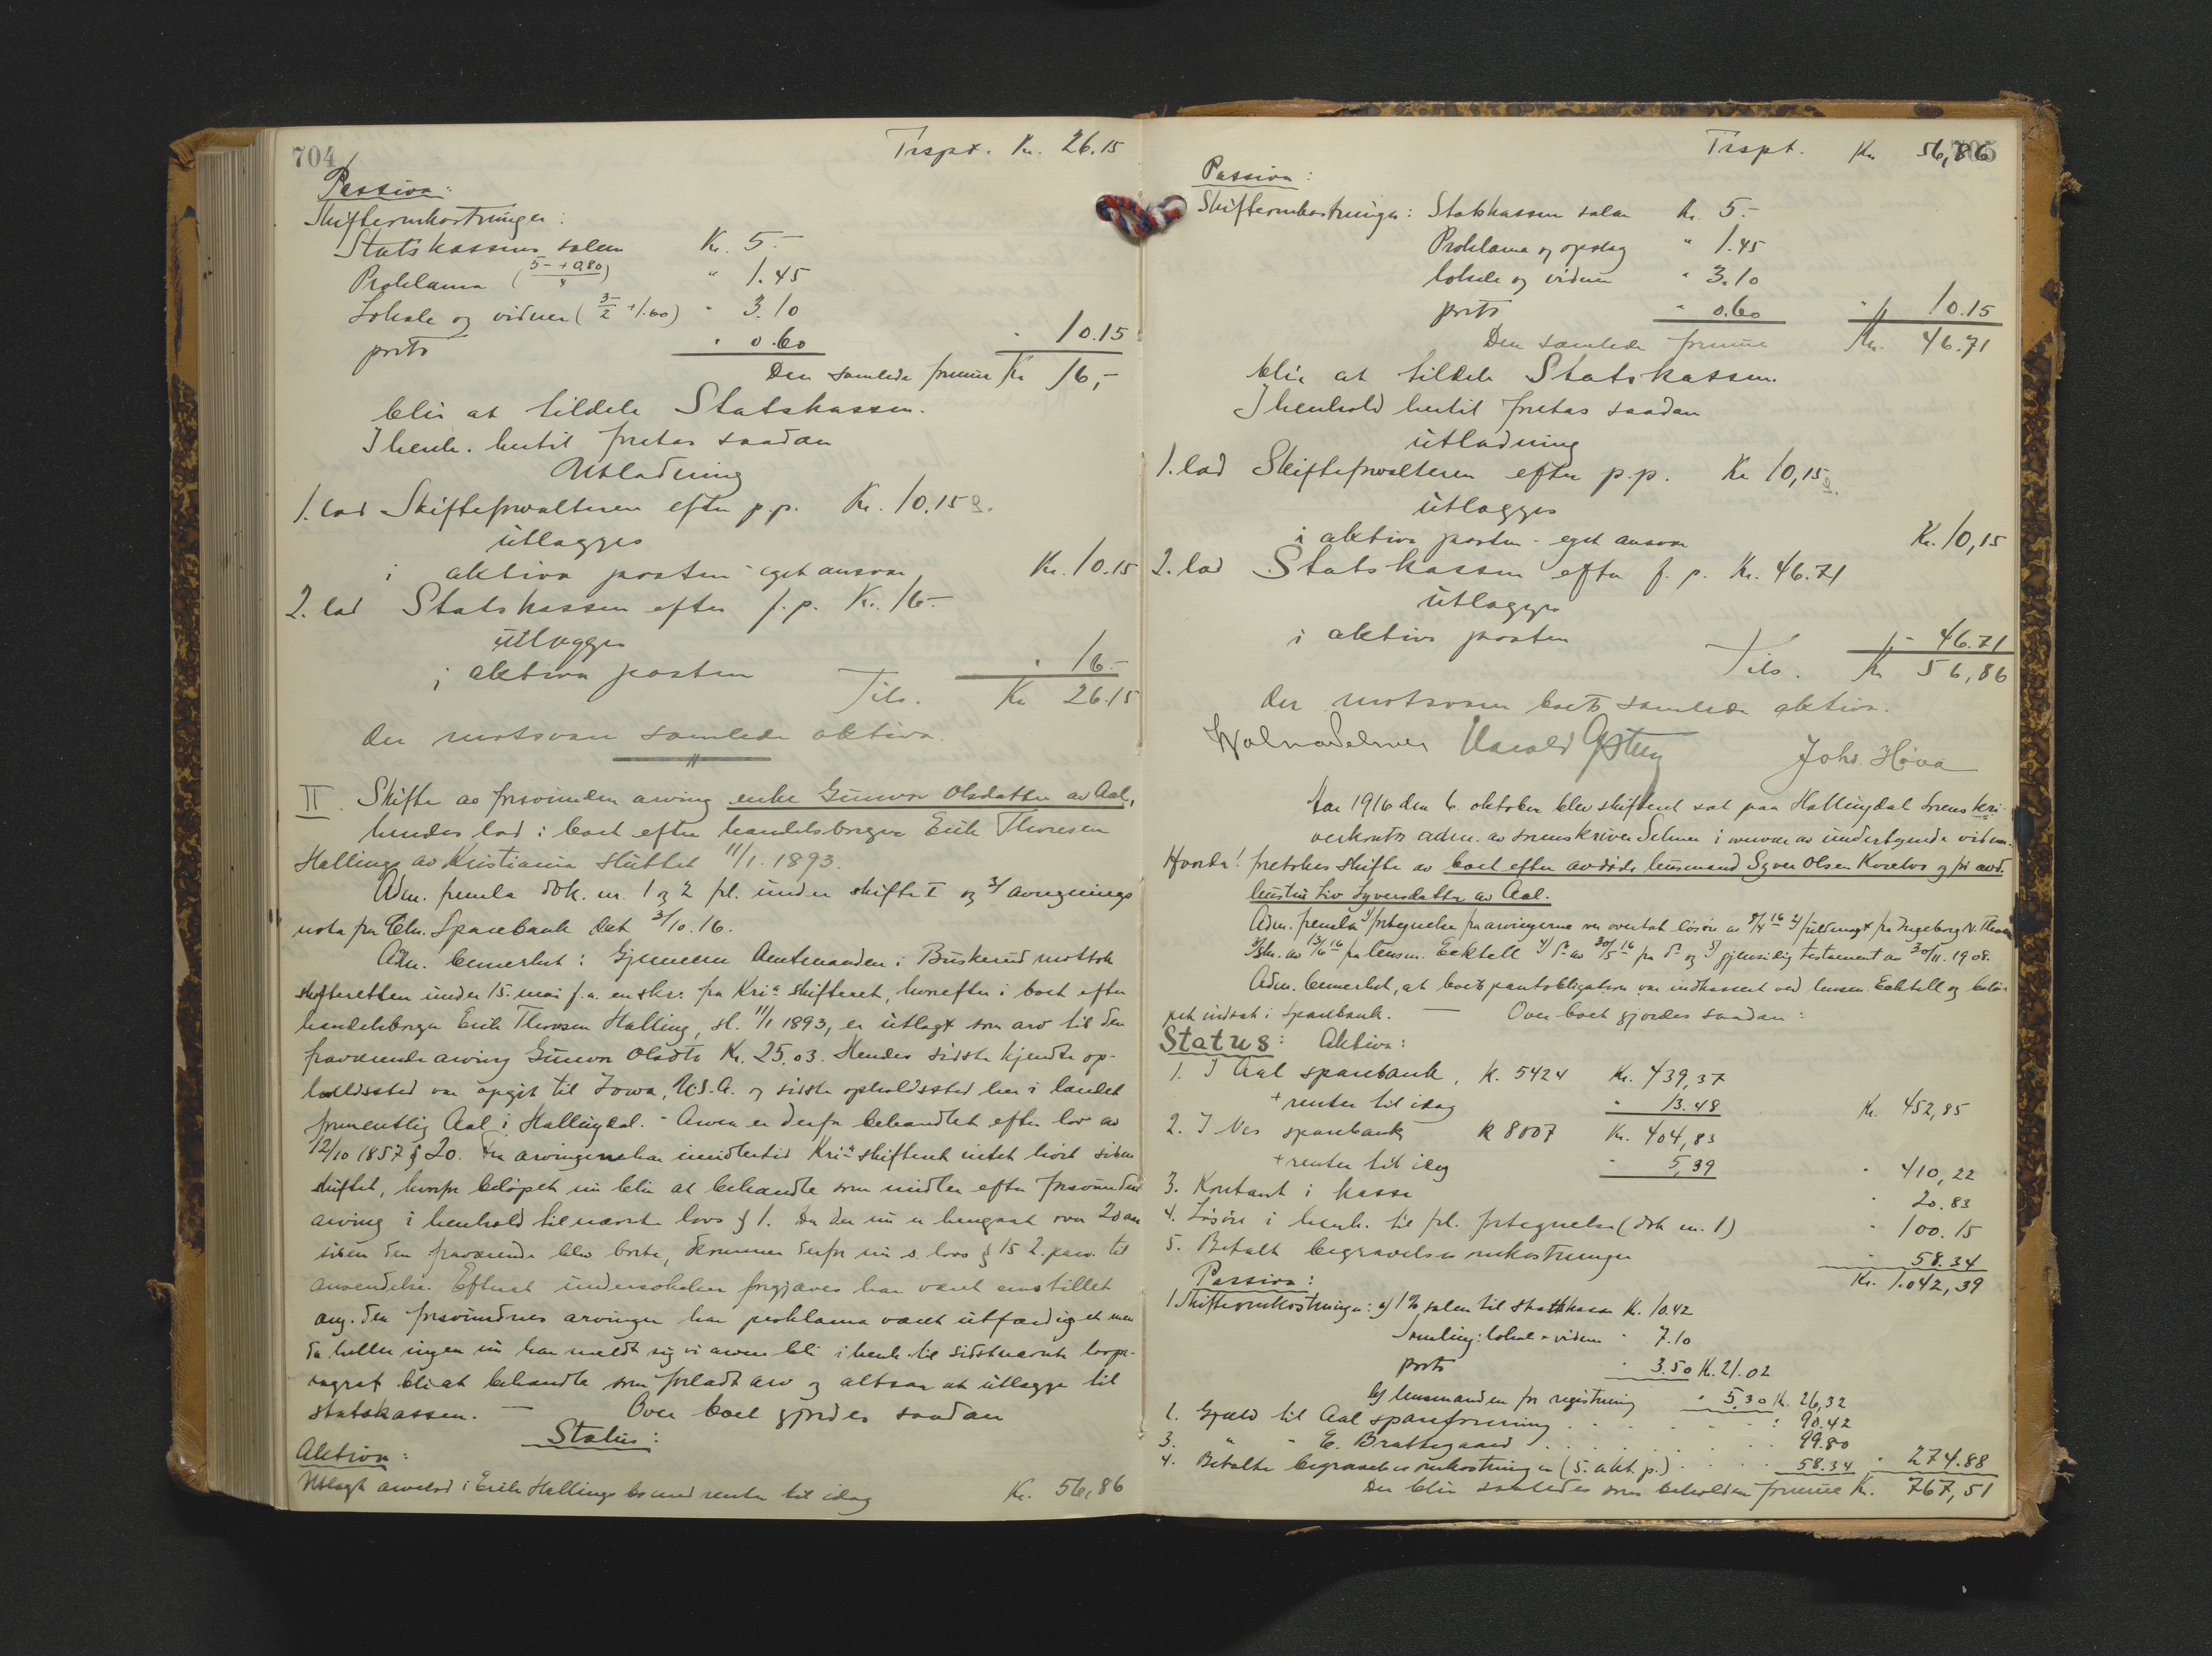 704
Trspt. Kr. 26.15
Passiva:
Skifteomkostninger:
Statskassens salær Kr. 5.-
Proklama (5-+0.80/4) " 1.45
Lokale og vidner (3-/2 +1.60) " 3.10
porto " 0.60 " 10.15
Den samlede formue Kr 16,-
blir at tildele Statskassen.
I henh. hertil foretas saadan
Utlodning
1. lod Skifteforvalteren efter p.p. Kr. 10.15
utlægges
i aktiva posten - eget ansvar Kr. 10.15
2. lod Statskassen efter f.p. Kr. 16.-
utlægges
i aktiva posten " 16.-
Tils. Kr 26.15
der motsvarer samlede aktiva.
II. Skifte av forsvunden arving enke Gunvor Olsdatter av Aal,
hendes lod i boet efter handelsborger Erik Thoresen
Halling av Kristiania sluttet 11/1. 1893.
Adm. fremla dok. nr. 1 og 2 frl. under skifte I og 3/ avregnings
nota fra Chr. Sparebank dat 3/10. 16.
Adm. bemerket: Gjennem Amtmanden i Buskerud mottok
skifteretten under 15. mai f.a. en skr. fra Kri.a skifteret, hvorefter i boet efter
handelsborger Erik Thoresen Halling, sl. 11/1 1893, er utlagt som arv til den
fraværende arving Gunvor Olsdtr Kr. 25.03. Hendes sidste kjendte op-
holdssted var opgit til Iowa, U.S.A. og sidste opholdssted her i landet
formentlig Aal i Hallingdal. - Arven er derfor behandlet efter lov av
12/10 1857 § 20. Fra arvingen har imidlertid Kri.a skifteret intet hørt siden
skiftet, hvorfor beløpet nu blir at behandle som midler efter forsvunden
arving i henhold til nævnte lovs § 1. Da der nu er hengaat over 20 aar
siden den fraværende blev borte, kommer derfor nu s. lovs § 15 2. passus til
anvendelse. Efterat undersøkelser forgjæves har været anstillet
ang. den forsvundnes arvinger har proklama været utfærdiget men
da heller ingen nu har meldt sig vil arven bli i henh. til sidstnævnte lovpa-
ragraf bli at behandle som forladt arv og altsaa at utlægge til
statskassen. — Over boet gjordes saadan
Status:
Aktiva:
Utlagt arvelod i Erik Hallings bo med renter til idag Kr. 56,86
705
Trspt. Kr 56,86
Passiva:
Skifteomkostninger: Statskassen salær Kr. 5.-
Proklama og opslag " 1.45
lokale og vidner " 3.10
porto " 0.60 " 10.15
Den samlede formue Kr. 46.71
blir at tildele Statskassen.
I henhold hertil foretas saadan
utlodning
1. lod Skifteforvalteren efter p.p. Kr 10,15
utlægges
i aktiva posten - eget ansvar Kr. 10,15
2. lod Statskassen efter f.p. Kr. 46.71
utlægges
i aktiva posten " 46.71
Tils. Kr 56,86
der motsvarer boets samlede aktiva.
Harald Johs. Hova
Aar 1916 den 6. oktober blev skifteret sat paa Hallingdal Sorenskri-
verkontor adm. av sorenskriver Selmer i nærvær av undertegnede vidner.
Hvorda! foretokes skifte av boet efter avdøde husmand Syver Olsen Kvelvo og før avd.
hustru Liv Syversdatter av Aal.
Adm. fremla 1/ fortegnelse fra arvingerne over overtat løsøre av 8/4 16 2/ fuldmagt fra Ingeborg N.
3/ skr. av 13/6 16 fra lensm. Ecktell 4/ do av 30/5 16 fra do og 5/ gjensidig testament av 30/11. 1908.
Adm. bemerket, at boets pantobligation var indkassert ved lensm. Ecktell og belø-
pet indsat i sparebank. — Over boet gjordes saadan:
Status: Aktiva:
1. I Aal sparebank, K. 5424 Kr. 439,37
+ renter til idag " 13.48 Kr. 452,85
2. I Nes sparebank K 8007 Kr. 404,83
+ renter til idag " 5,39 " 410,22
3. Kontant i kasse " 20.83
4. Løsøre i henh. til frl. fortegnelse (dok nr. 1) " 100.15
5. Betalt begravelsesomkostninger " 58.34
Kr. 1.042,39
Passiva:
1. Skifteomkostninger: a/ 1% salær til statskassen K. 10.42
Samling: lokale + vidner " 7.10
porto " 3.50 K. 21.02
b/ lensmanden for registrering " 5.30 K. 26,32
2. Gjæld til Aal spareforening " 90.42
3. " - E. Brattegaard 99.80
4. Betalte begravelsesomkostninger (5. akt. p.) 58.34 " 274.88
Der blir saaledes som beholden formue K. 767,51